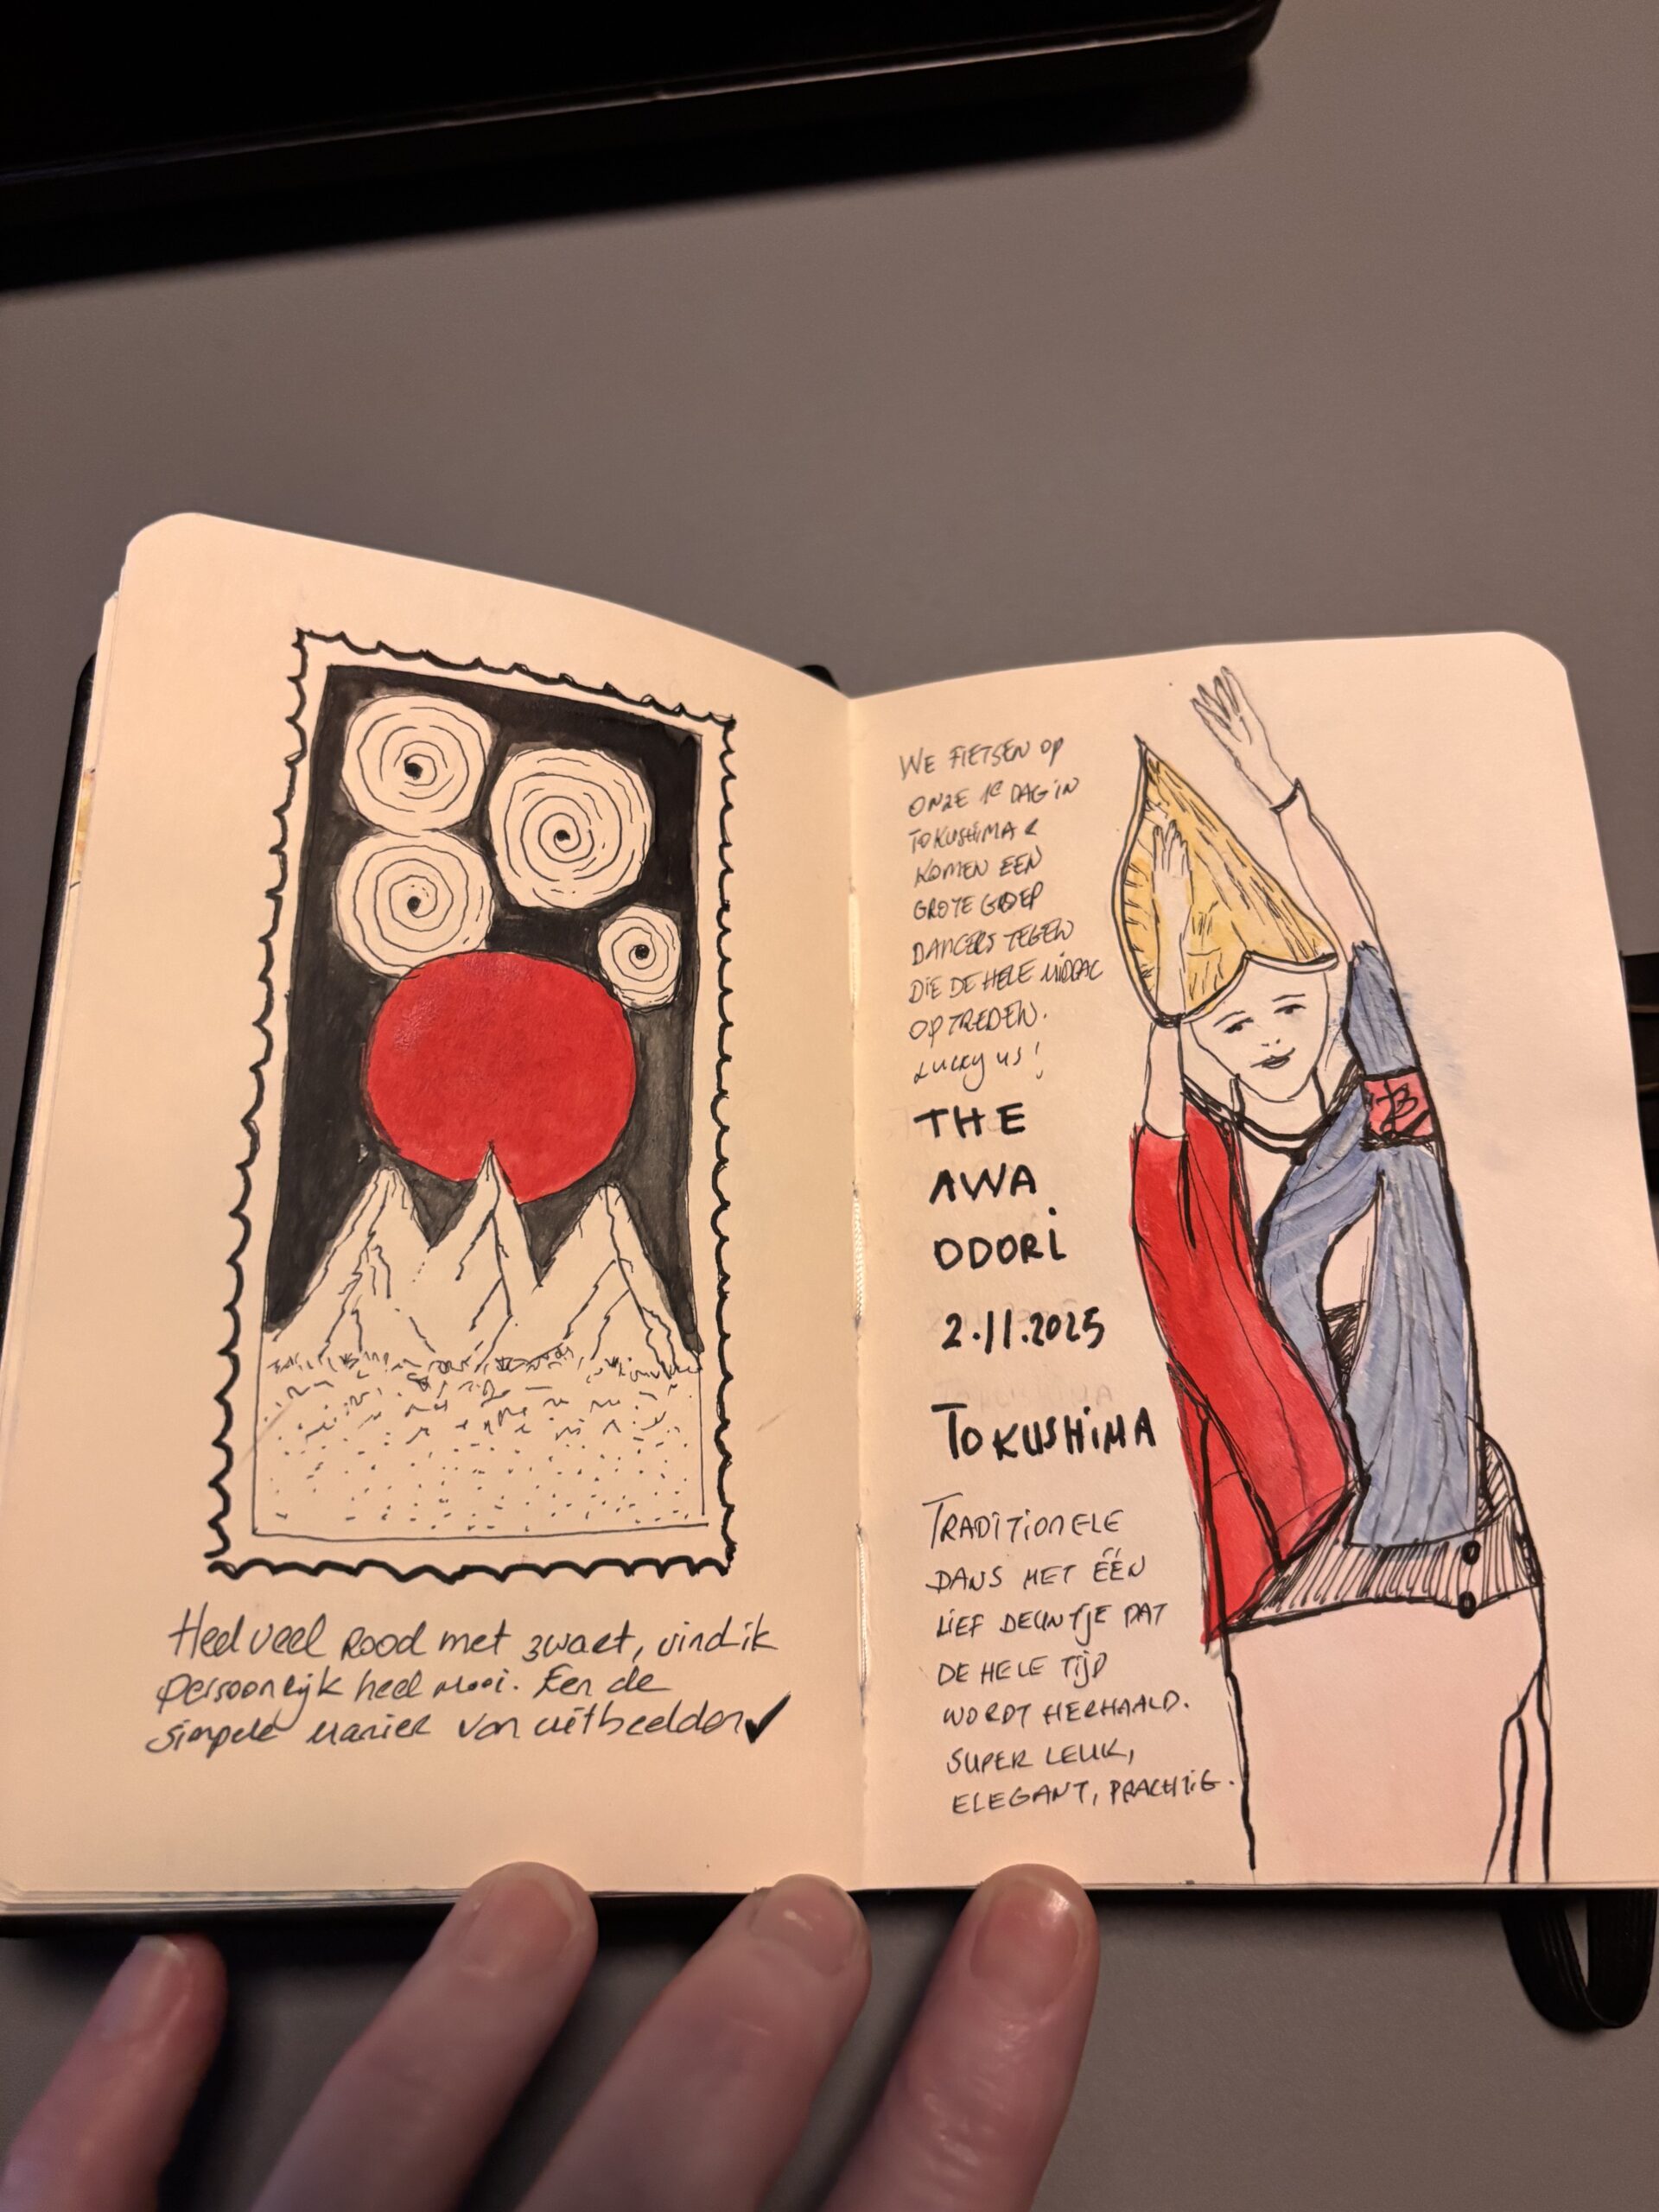 Heel veel Rood met zwart, vind ik
persoonlijk heel mooi. Een de
simpele manier van uitbeelden ✓
WE FIETSEN OP
ONZE 1e DAG IN
TOKUSHIMA &
KOMEN EEN
GROTE GROEP
DANCERS TEGEN
DIE DE HELE MIDDAG
OPTREDEN.
Lucky us!
THE
AWA
ODORI
2.11.2025
TOKUSHIMA
TRADITIONELE
DANS MET ÉÉN
LIEF DEUNTJE DAT
DE HELE TIJD
WORDT HERHAALD.
SUPER LEUK,
ELEGANT, PRACHTIG.